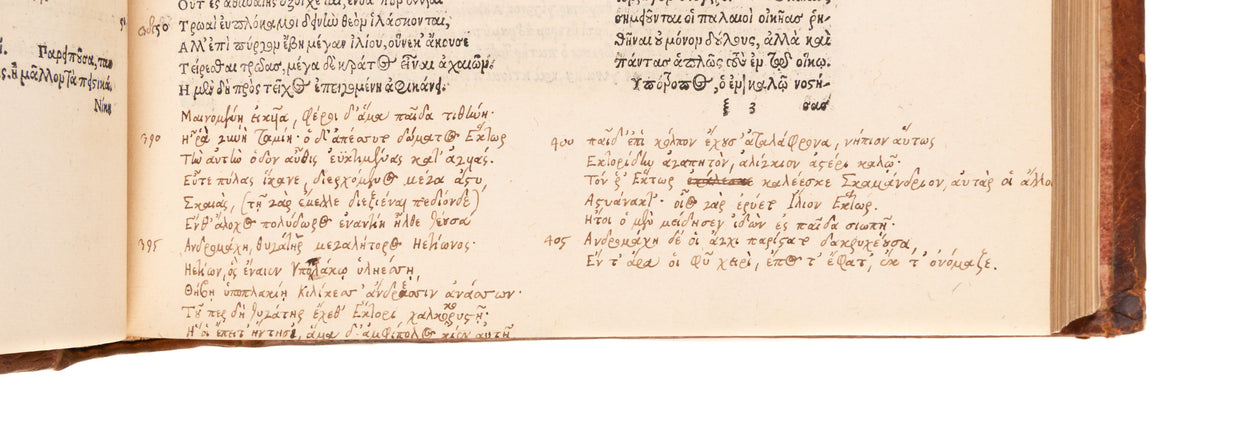 Γαρ
ς. ἢ μᾶλλον
Νίκα
Τρωαὶ ἐϋπλόκαμοι δεινὴν θεὸν ἱλάσκονται,
Ἀλλ' ἐπὶ πύργον ἔβη μέγαν ἰλίου, οὕνεκ ἄκουσε
Τείρεσθαι τρῶας, μέγα δὲ κράτος εἶναι ἀχαιῶν.
Η μὲν δὴ πρὸς τεῖχος ἐπειγομένη ἀφικάνει.
Μαινομένῃ εἰκυῖα, φέρει δ' ἅμα παῖδα τιθήνη·
390 Η ῥα γυνὴ ταμίη· ὁ δ' ἀπέσσυτο δώματος Εκτωρ
Τὴν αὐτὴν ὁδὸν αὖθις ἐϋκτιμένας κατ' ἀγυιάς.
Εὖτε πύλας ἵκανε, διερχόμενος μέγα ἄστυ,
Σκαιας, (τῇ γὰρ ἔμελλε διεξιέναι πεδίονδε)
Ενθ' ἄλοχος πολύδωρος ἐναντίη ἦλθε θέουσα
395 Ανδρομάχη, θυγάτηρ μεγαλήτορος Ηετίωνος·
Ηετίων, ὃς ἔναιεν Υποπλάκῳ ὑληέσσῃ,
Θήβῃ ὑποπλακίῃ Κιλίκεσσ' ἄνδρεσσιν ἀνάσσων·
Τοῦ περ δὴ θυγάτηρ ἔχεθ' Εκτορι χαλκοκορυστῇ·
Η οἱ ἔπειτ' ἤντησε, ἅμα δ' ἀμφίπολος κίεν αὐτῇ
σημειοῦνται οἱ παλαιοὶ οἰκῆας ῥη-
θῆναι οὐ μόνον δούλους, ἀλλὰ καὶ
πάντας ἁπλῶς τοὺς ἐν τῷ οἴκῳ.
ξ 3 σασ
400 παῖδ' ἐπὶ κόλπον ἔχουσ' ἀταλάφρονα, νήπιον αὔτως
Εκτορίδην ἀγαπητὸν, ἀλίγκιον ἀστέρι καλῷ·
Τόν ῥ' Εκτωρ καλέεσκε Σκαμάνδριον, αὐτὰρ οἱ ἄλλοι
Αστυάνακτ'· οἶος γὰρ ἐρύετ Ιλιον Εκτωρ.
Ητοι ὁ μὲν μείδησεν ἰδὼν ἐς παῖδα σιωπῇ·
405 Ανδρομάχη δέ οἱ ἄγχι παρίστατο δακρυχέουσα,
Εν τ' ἄρα οἱ φῦ χειρὶ, ἔπος τ' ἔφατ', ἔκ τ' ὀνόμαζε.